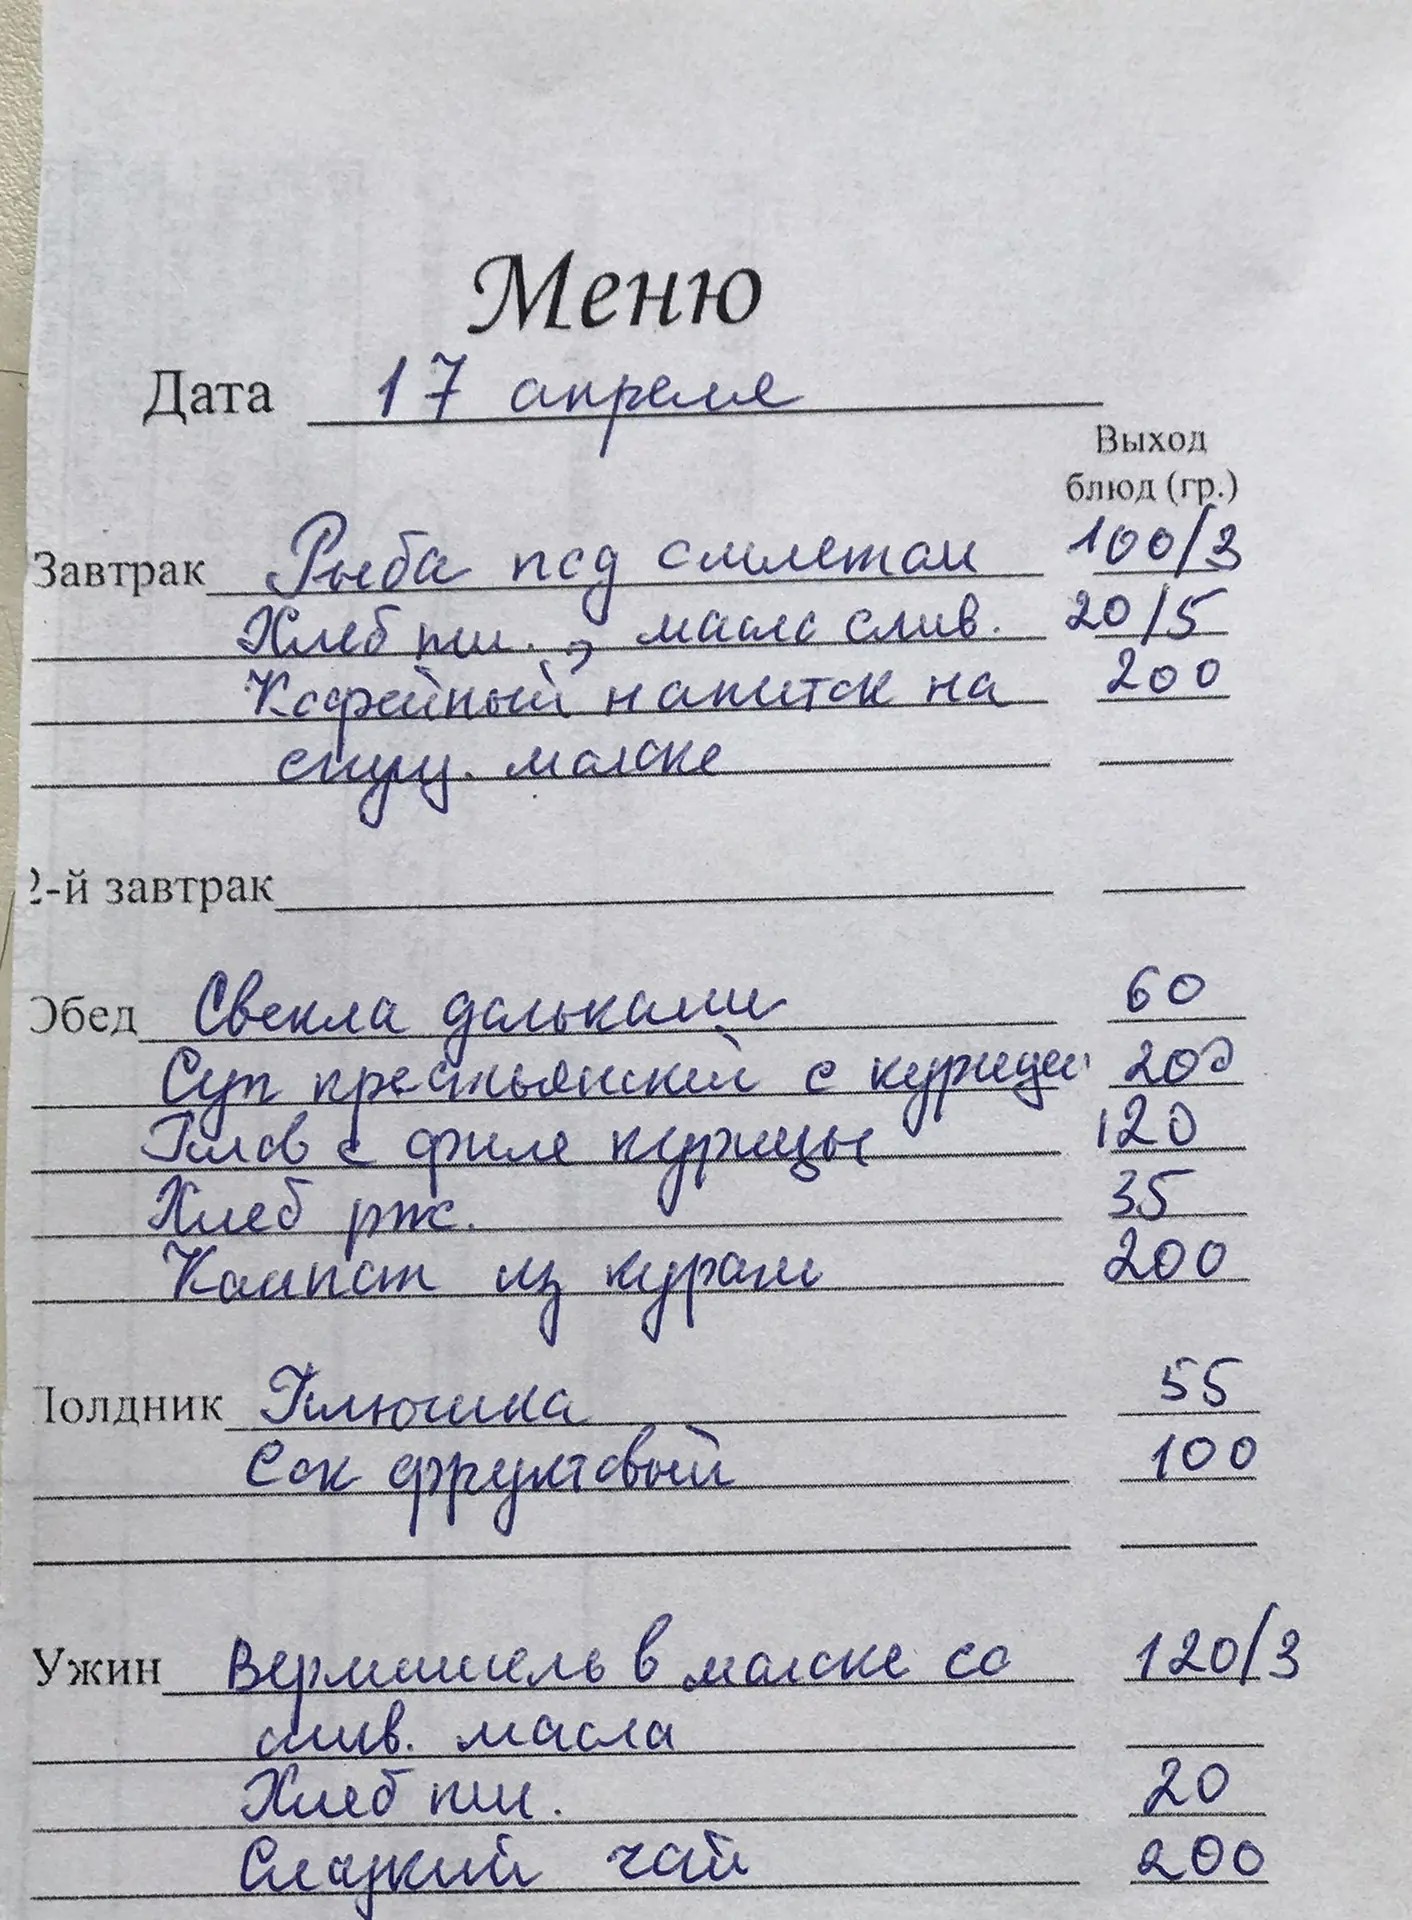 Меню
Дата 17 апреля
Выход
блюд (гр.)
Завтрак Рыба под омлетом 100/3
Хлеб пш., масло слив. 20/5
Кофейный напиток на 200
сгущ. молоке
2-й завтрак
Обед Свекла дольками 60
Суп крестьянский с курицей 200
Плов с филе курицы 120
Хлеб рж. 35
Компот из кураги 200
Полдник Плюшка 55
Сок фруктовый 100
Ужин Вермишель в молоке со 120/3
слив. масла
Хлеб пш. 20
Сладкий чай 200